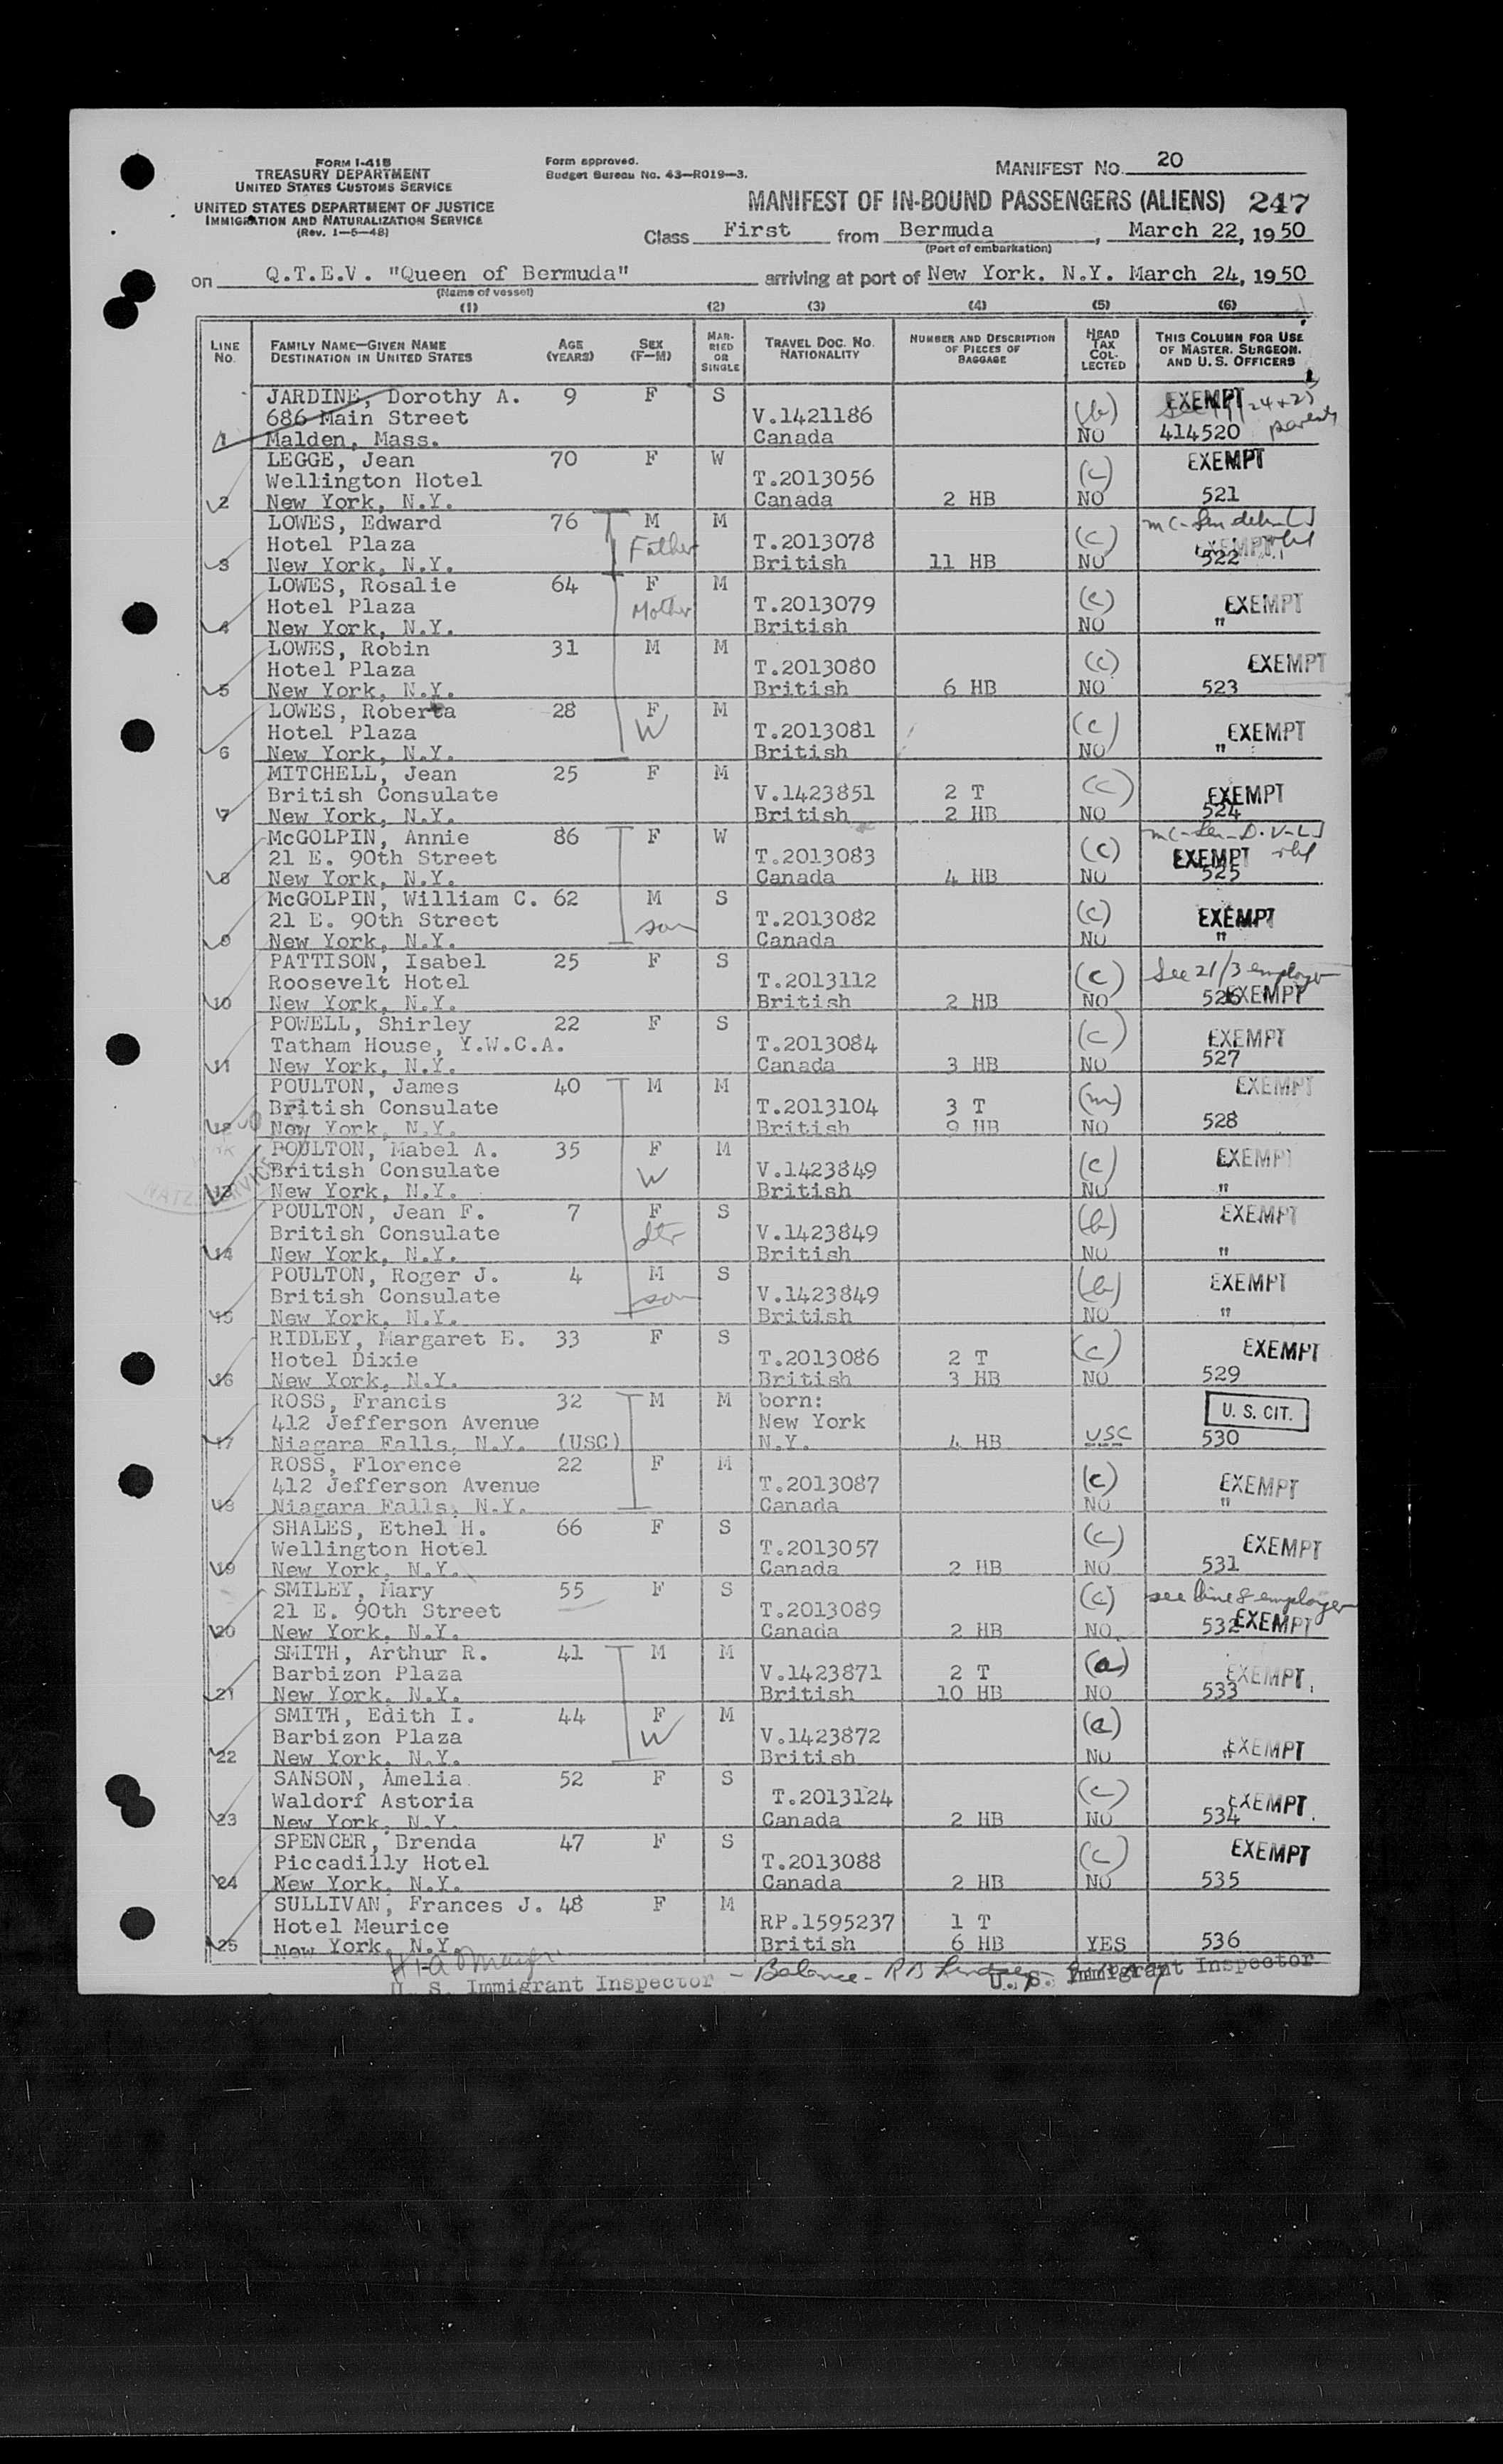 FORM I-418
TREASURY DEPARTMENT
UNITED STATES CUSTOMS SERVICE
UNITED STATES DEPARTMENT OF JUSTICE
IMMIGRATION AND NATURALIZATION SERVICE
(Rev. 1-5-48)
Form approved.
Budget Bureau No. 43-R019-3.
MANIFEST NO. 20
MANIFEST OF IN-BOUND PASSENGERS (ALIENS) 247
Class First from Bermuda, March 22, 1950
(Port of embarkation)
on Q.T.E.V. "Queen of Bermuda" arriving at port of New York. N.Y. March 24, 1950
(Name of vessel)
(1) (2) (3) (4) (5) (6)
LINE NO. FAMILY NAME—GIVEN NAME DESTINATION IN UNITED STATES AGE (YEARS) SEX (F—M) MARRIED OR SINGLE TRAVEL DOC. NO. NATIONALITY NUMBER AND DESCRIPTION OF PIECES OF BAGGAGE HEAD TAX COLLECTED THIS COLUMN FOR USE OF MASTER. SURGEON. AND U. S. OFFICERS
JARDINE, Dorothy A. 9 F S EXEMPT
686 Main Street V.1421186 (b) 24+25 parents
1 Malden, Mass. Canada NO 414520
LEGGE, Jean 70 F W EXEMPT
Wellington Hotel T.2013056 (c)
2 New York, N.Y. Canada 2 HB NO 521
LOWES, Edward 76 M M
Hotel Plaza Father T.2013078 (c) EXEMPT
3 New York, N.Y. British 11 HB NO 522
LOWES, Rosalie 64 F M
Hotel Plaza Mother T.2013079 (c) EXEMPT
4 New York, N.Y. British NO "
LOWES, Robin 31 M M
Hotel Plaza T.2013080 (c) EXEMPT
5 New York, N.Y. British 6 HB NO 523
LOWES, Roberta 28 F M
Hotel Plaza W T.2013081 (c) EXEMPT
6 New York, N.Y. British NO "
MITCHELL, Jean 25 F M
British Consulate V.1423851 2 T (c) EXEMPT
7 New York, N.Y. British 2 HB NO 524
McGOLPIN, Annie 86 F W
21 E. 90th Street T.2013083 (c) EXEMPT
8 New York, N.Y. Canada 4 HB NO 525
McGOLPIN, William C. 62 M S
21 E. 90th Street son T.2013082 (c) EXEMPT
9 New York, N.Y. Canada NO "
PATTISON, Isabel 25 F S See 21/3 employer
Roosevelt Hotel T.2013112 (c)
10 New York, N.Y. British 2 HB NO 526 EXEMPT
POWELL, Shirley 22 F S
Tatham House, Y.W.C.A. T.2013084 (c) EXEMPT
11 New York, N.Y. Canada 3 HB NO 527
POULTON, James 40 M M EXEMPT
British Consulate T.2013104 3 T (m)
12 New York, N.Y. British 9 HB NO 528
POULTON, Mabel A. 35 F M EXEMPT
British Consulate W V.1423849 (c)
13 New York, N.Y. British NO "
POULTON, Jean F. 7 F S EXEMPT
British Consulate dtr V.1423849 (b)
14 New York, N.Y. British NO "
POULTON, Roger J. 4 M S EXEMPT
British Consulate son V.1423849 (b)
15 New York, N.Y. British NO "
RIDLEY, Margaret E. 33 F S EXEMPT
Hotel Dixie T.2013086 2 T (c)
16 New York, N.Y. British 3 HB NO 529
ROSS, Francis 32 M M born:
412 Jefferson Avenue New York U. S. CIT.
17 Niagara Falls, N.Y. (USC) N.Y. 4 HB USC 530
ROSS, Florence 22 F M
412 Jefferson Avenue T.2013087 (c) EXEMPT
18 Niagara Falls, N.Y. Canada NO "
SHALES, Ethel H. 66 F S
Wellington Hotel T.2013057 (c) EXEMPT
19 New York, N.Y. Canada 2 HB NO 531
SMILEY, Mary 55 F S see line 8 employer
21 E. 90th Street T.2013089 (c)
20 New York, N.Y. Canada 2 HB NO 532 EXEMPT
SMITH, Arthur R. 41 M M
Barbizon Plaza V.1423871 2 T (a) EXEMPT
21 New York, N.Y. British 10 HB NO 533
SMITH, Edith I. 44 F M
Barbizon Plaza W V.1423872 (a)
22 New York, N.Y. British NO " EXEMPT
SANSON, Amelia 52 F S
Waldorf Astoria T.2013124 (c) EXEMPT
23 New York, N.Y. Canada 2 HB NO 534
SPENCER, Brenda 47 F S EXEMPT
Piccadilly Hotel T.2013088 (c)
24 New York, N.Y. Canada 2 HB NO 535
SULLIVAN, Frances J. 48 F M
Hotel Meurice RP.1595237 1 T
25 New York, N.Y. British 6 HB YES 536
U. S. Immigrant Inspector - Balance - R B U. S. Immigrant Inspector